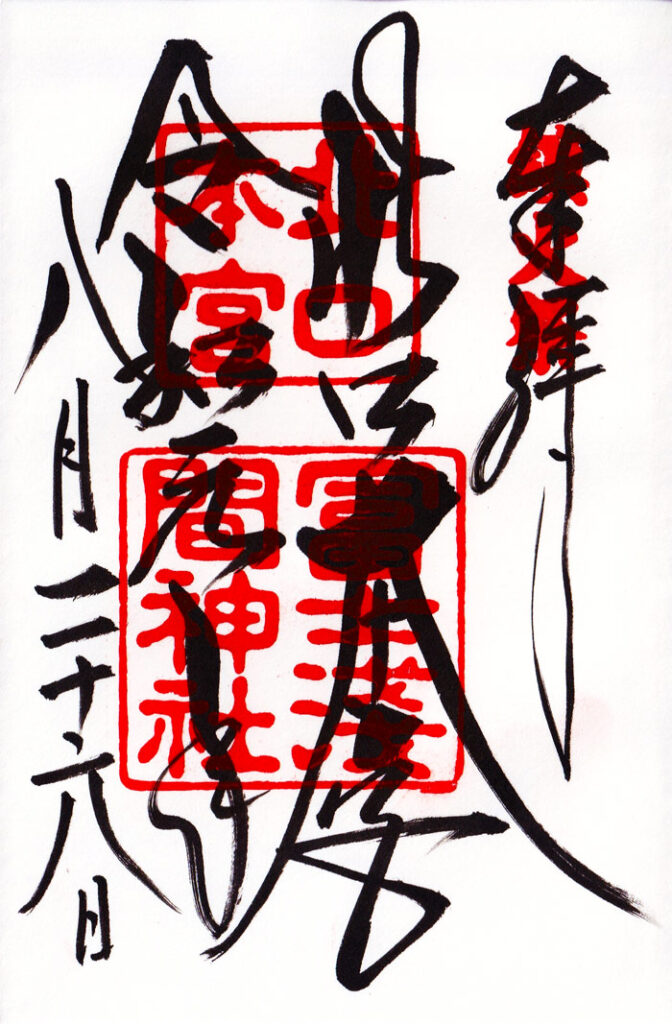 奉拝
北口
本宮
冨士浅
間神社
令和元年
八月二十六日